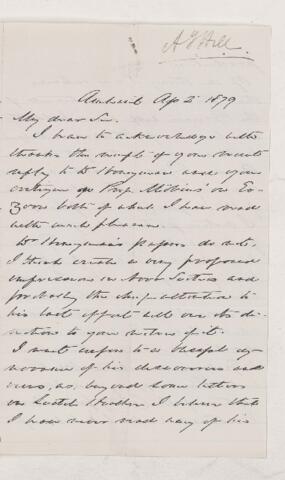 A G Hill
Amherst Apl 2 1879
My dear Sir.
I have to acknowledge with
thanks the receipt of your recent
reply to Dr Honeyman and your
critique of Prof. Möbius' on Eo-
zoon both of which I have read
with much pleasure.
Dr Honeyman's papers do not,
I think create a very profound
impression in Nova Scotia and
probably the chief attention to
his last effort will owe
to your notice of it.
I must confess to a
of his discoveries and
views, as beyond some letters
on I believe that
I have never read any of his